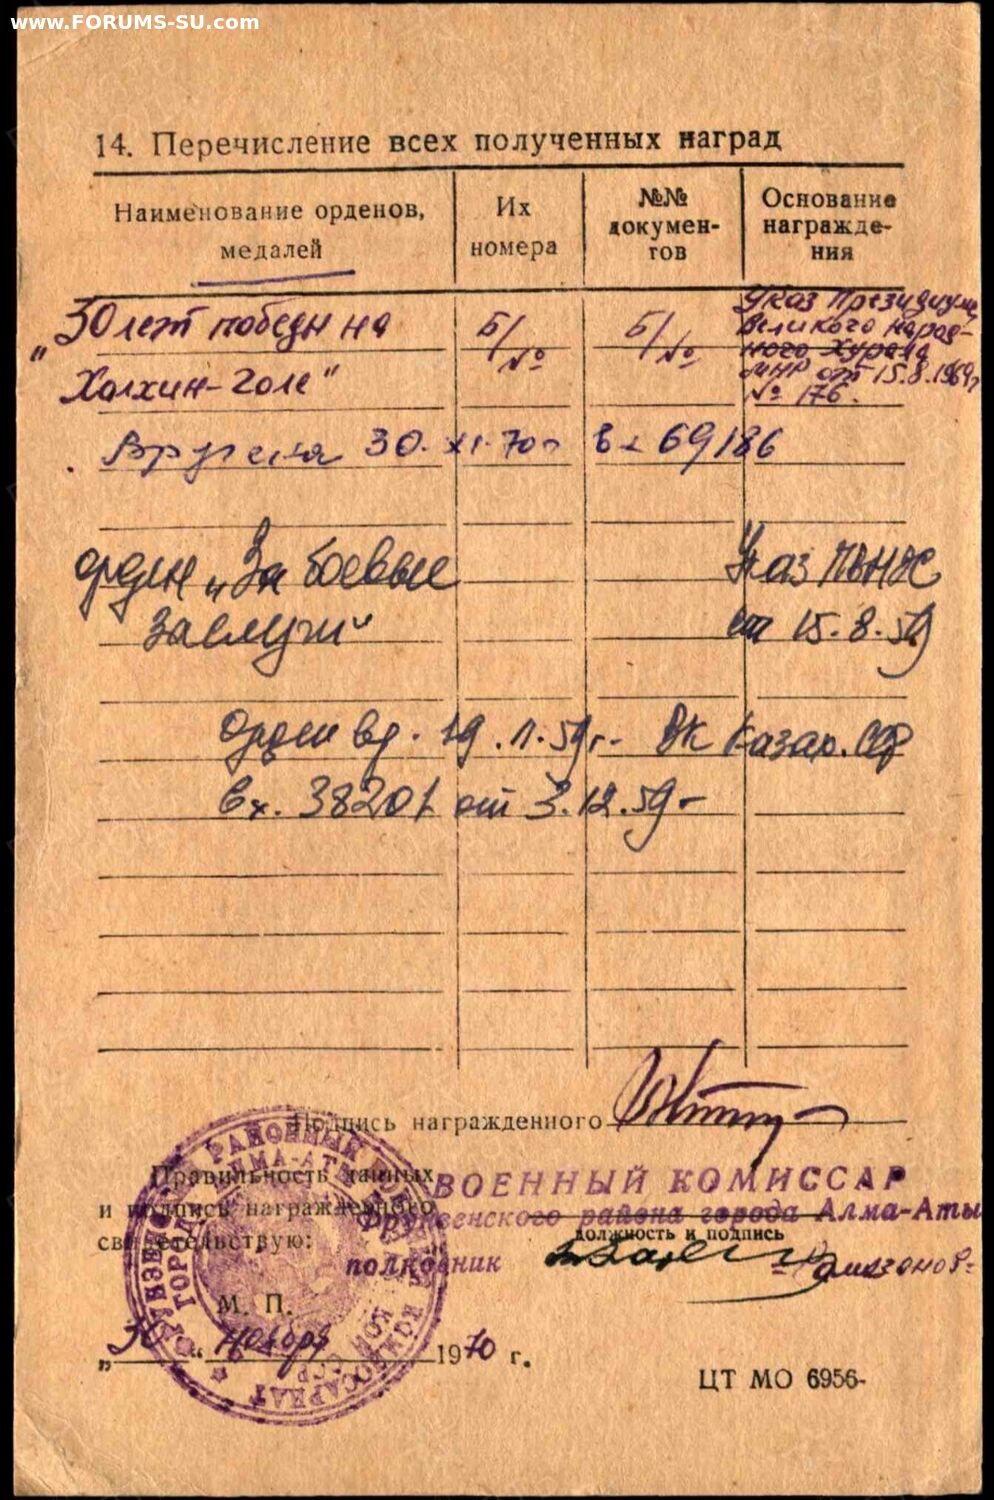 www.FORUMS-SU.com
14. Перечисление всех полученных наград
Наименование орденов, медалей
Их номера
№№ докумен-тов
Основание награжде-ния
„30 лет победы на
Халхин-Голе"
Б/№
Б/№
Указ Президиума
Великого народ-
ного Хурала
МНР от 15.8.1969г
№ 176.
Вручена 30.XI.70г вх 69186
орден „За боевые
заслуги"
Указ ПВНХ
от 15.8.59
Орден вр. 19.11.59г. Казах. ССР
вх. 38201 от 3.12.59г
Подпись награжденного
Правильность данных
и подпись награжденного
свидетельствую:
ВОЕННЫЙ КОМИССАР
Фрунзенского района города Алма-Аты
должность и подпись
полковник
М. П.
„30" Ноября 1970 г.
ЦТ МО 6956-